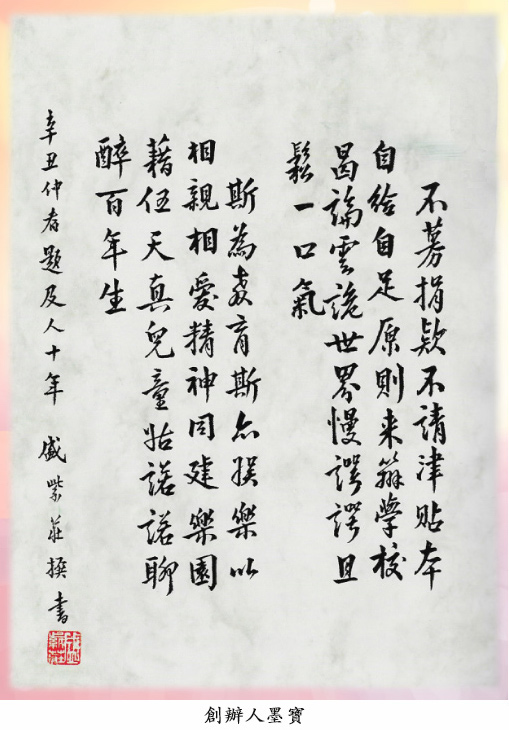 不募捐款不請津貼本
自給自足原則来辦學校
曷論雲詭世界慢諤諤且
鬆一口氣
斯為教育斯亦娛樂以
相親相愛精神同建樂園
藉伍天真兒童姑諾諾聊
醉百年生
辛丑仲春題及人十年 盛紫莊撰書
創辦人墨寶